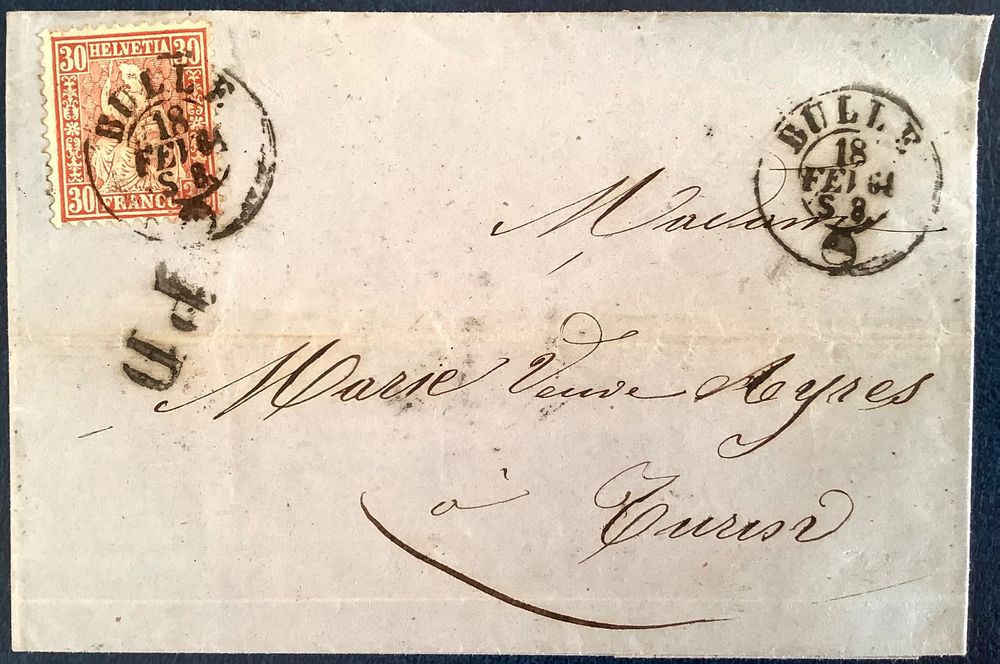 30 HELVETIA 30
30 FRANCO
BULLE
18
FEV 64
S 8
BULLE
18
FEV 64
S 8
P D
Madame
Marie Veuve Ayres
à Turin